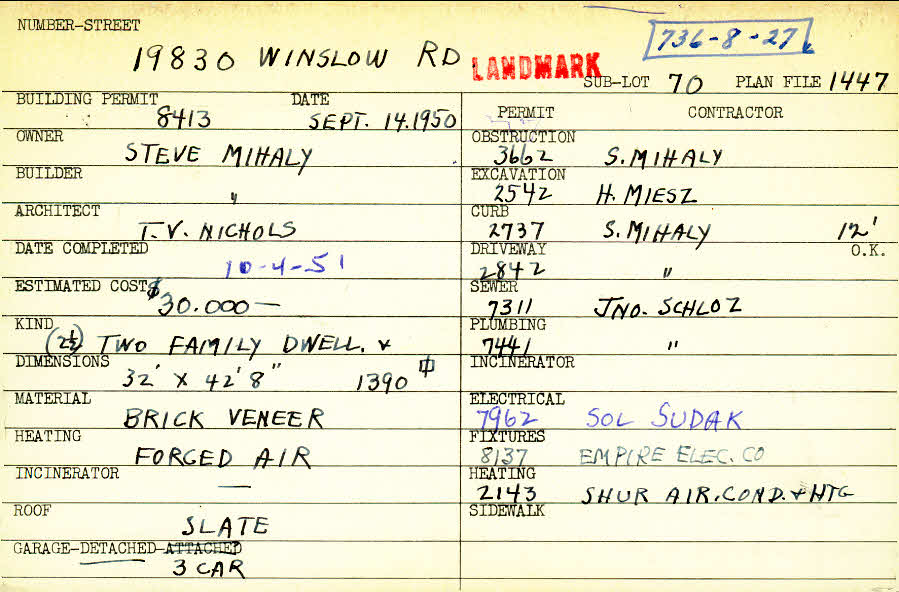 NUMBER-STREET
19830 WINSLOW RD
LANDMARK
736-8-27
SUB-LOT 70 PLAN FILE 1447
BUILDING PERMIT DATE
8413 SEPT. 14.1950
OWNER
STEVE MIHALY
BUILDER
"
ARCHITECT
T.V. NICHOLS
DATE COMPLETED
10-4-51
ESTIMATED COST $
30.000—
KIND
(2½) TWO FAMILY DWELL. &
DIMENSIONS
32' X 42' 8" 1390
MATERIAL
BRICK VENEER
HEATING
FORCED AIR
INCINERATOR
—
ROOF
SLATE
GARAGE-DETACHED-ATTACHED
3 CAR
PERMIT CONTRACTOR
OBSTRUCTION
3662 S. MIHALY
EXCAVATION
2542 H. MIESZ
CURB
2737 S. MIHALY 12'
DRIVEWAY O.K.
2842 "
SEWER
7311 JNO. SCHLOZ
PLUMBING
7441 "
INCINERATOR
ELECTRICAL
7962 SOL SUDAK
FIXTURES
8137 EMPIRE ELEC. CO
HEATING
2143 SHUR AIR. COND. & HTG
SIDEWALK